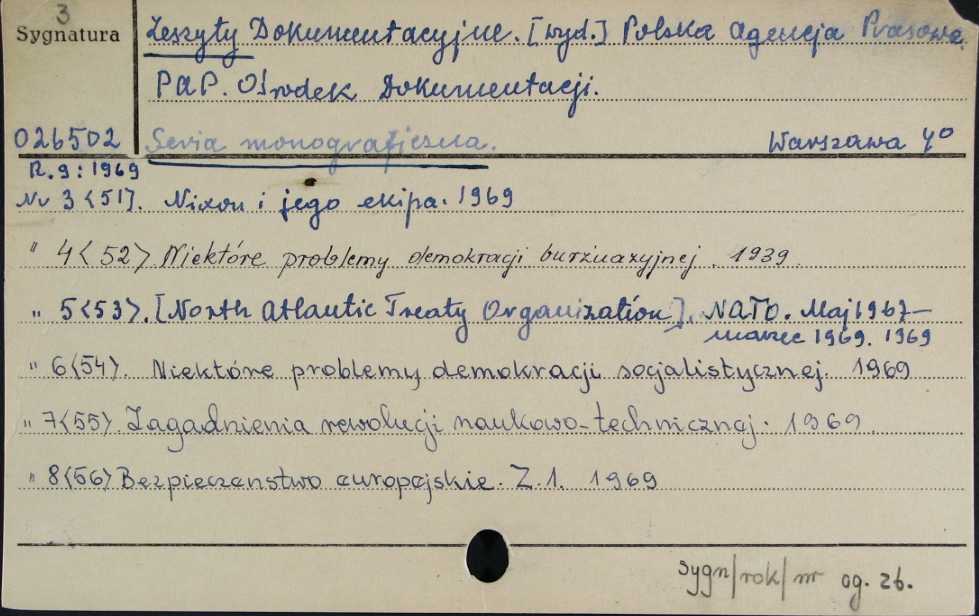 3
Sygnatura
Zeszyty Dokumentacyjne. [wyd.] Polska Agencja Prasowa
PAP. Ośrodek Dokumentacji.
026502 Seria monograficzna. Warszawa 4°
R. 9: 1969
Nr 3 <51>. Nixon i jego ekipa. 1969
" 4 <52> Niektóre problemy demokracji burżuazyjnej. 1939.
" 5 <53>. [North Atlantic Treaty Organization]. NATO. Maj 1967-
marzec 1969. 1969
" 6 <54>. Niektóre problemy demokracji socjalistycznej. 1969
" 7 <55> Zagadnienia rewolucji naukowo-technicznej. 1969.
" 8 <56> Bezpieczeństwo europejskie. Z. 1. 1969
sygn/rok/nr og. zb.